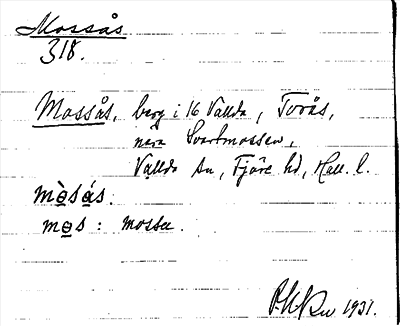 Mossås
318.
Mossås, berg i 16 Vallda, Torås,
nära Svartmossen,
Vallda sn, Fjäre hd, Hall. l.
mòsás.
mos : mosse.
1931.